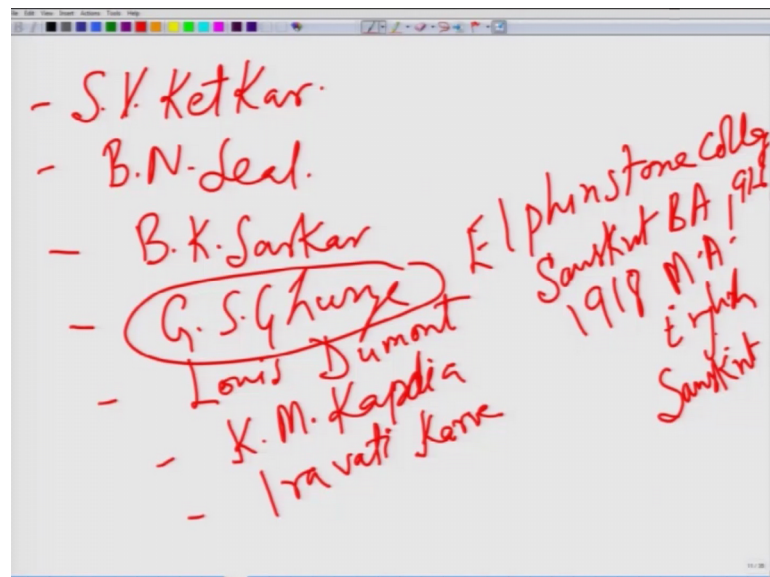 File Edit View Insert Actions Tools Help
- S.V. Ketkar.
- B.N. Seal.
- B.K. Sarkar
- G.S. Ghurye
- Louis Dumont
- K.M. Kapdia
- Iravati Karve
Elphinstone Colleg
Sanskrit BA 1916
1918 M.A.
English
Sanskrit